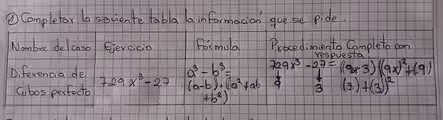 ① Completar la siguiente tabla la información que se pide.
Nombre del caso Ejercicio Fórmula Procedimiento Completo con respuesta
Diferencia de Cubos perfecto
729x³-27
a³-b³=
(a-b)·(a²+ab
+b²)
729x³-27=(9x-3)(9x)²+(9)
9 3 (3)+(3)²